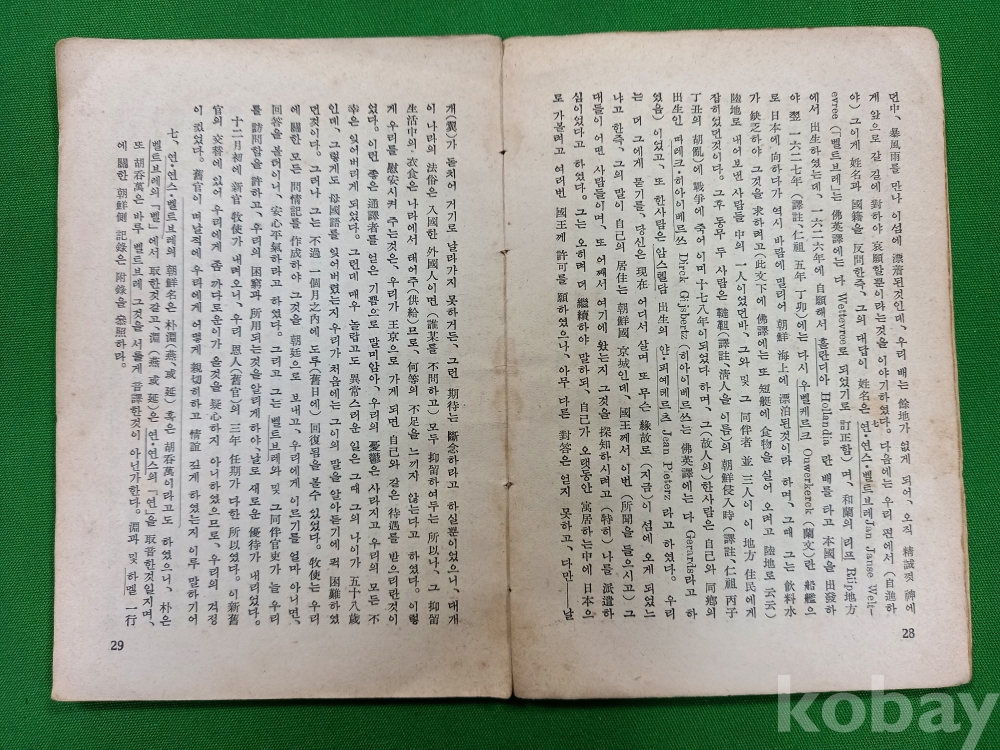 먼中、暴風雨를 만나 이섬에 漂着된것인데、우리 배는 餘地가 없게 되어、오직 精誠껏 神에
게 앞으로 갈 길에 對하야 哀願할뿐이라는것을 이야기하였다。다음에는 우리 편에서(自進하
야) 그이게 姓名과 國籍을 反問한즉、그의 대답이 姓名은 얀·얀스·벨트브레Jan Janse Welt-
evree (「벨트브레」는 佛英譯에는 다 Wettevree로 되었기로 訂正함) 며、和蘭의 리프 Riip地方
에서 出生하였는데、一六二六年에 自願해서 홀란디아 Hollandia 란 배를 타고 本國을 出發하
야 翌 一六二七年(譯註、仁祖 五年 丁卯)에는 다시 우벨케르크 Ouwerkerck (蘭文)란 船艦으
로 日本에 向하다가 역시 바람에 밀리어 朝鮮 海上에 漂泊된것이라 하며、그때 그는 飮料水
가 缺乏하야 그것을 求하려고(此文下에 佛譯에는 또 短艇에 食物을 실어 오려고 陸地로 云云)
陸地로 내어보낸 사람들 中의 一人이었던바、그와 및 그 同伴者 並 三人이 이 地方 住民에게
잡히었던것이라 한다。그後 동무 두 사람은 韃靼(譯註、淸人을 이름)의 朝鮮侵入時(譯註、仁祖 丙子
丁丑의 胡亂)에 戰爭에 죽어 이며 十七八年이되었다 하며、그(故人의) 한사람은 自己와 同鄕의
出生인 띠레크·히아이베르쓰 Dirck Gijsbertz (히아이베르쓰는 佛英譯에는 다 Gerards라고 하
였음) 이었고、또 한사람은 암스텔담 出生의 얀·피에테르츠 Jean Pieterz 라고 하였다。우리
는 더 그에게 묻기를、당신은 現在 어디서 살며 또 무슨 緣故로 (지금) 이 섬에 오게 되었느
냐고 한즉、그의 말이 自己의 居住는 朝鮮國 京城인데、國王께서 이번 (所聞을 들으시고) 그
대들이 어떤 사람들이며、또 어째서 여기에 왔는지 그것을 探知하시려고 (特히) 나를 派遣하
심이었다고 하였다。그는 오히려 더 繼續하야 말하되、自己가 오랫동안 寓居하는中에 日本으
로 가볼려고 여러번 國王께 許可를 願하였으나、아무 다른 對答은 얻지 못하고、다만——날
28
개(翼)가 돋치어 거기로 날라가지 못하거든、그런 期待는 斷念하라고 하실뿐이었으니、대개
이 나라의 法俗은 入國한 外國人이면 (誰某를 不問하고) 모두 抑留하여두는 所以나、그 抑留
生活中의 衣食은 나라에서 태어주(供給)므로、何等의 不足을 느끼지 않는다고 하였다。이렇
게 우리를 慰安시켜 주는것은、우리가 王京으로 가게 되면 自己와 같은 待遇를 받으리란것이
었다。이런 좋은 通譯者를 얻은 기쁨으로 말미암아、우리의 憂鬱은 사라지고 우리의 모든 不
幸은 잊어버리게 되었다。그런데 매우 놀랍고도 異常스러운 일은 그때 그의 나이가 五十八歲
인데、그렇게도 母國語를 잊어버렸는지 우리가 처음에는 그이의 말을 알아듣기에 퍽 困難하였
던것이다。그러나 그는 不過 一個月之內에 도루 (舊日에) 回復됨을 볼수 있었다。牧使는 우리
에 關한 모든 問情記를 作成하야 그것을 朝廷으로 보내고、우리에게 이르기를 얼마 아니면、
回答을 볼러이니、安心平氣하라고 하였다。그리고 그는 벨트브레와 및 그 同伴官吏가 늘 우리
를 訪問함을 許하고、우리의 困窮과 所用되는것을알리게 하야、날로 새로운 優待가 내리었다。
十二月初에 新官 牧使가 내려오니、우리 恩人(舊官)의 三年 任期가 다한 所以였다。이 新舊
官의 交替에 있어 우리에게 좀 까다로운이가 올것을 疑心하지 아니하였으므로、우리의 걱정
이 컸었다。舊官이 떠날적에 우리에게 어떻게 親切히하고 情誼 깊게 하였는지 이루 말하기어
七、얀·얀스·벨트브레의 朝鮮名은 朴淵(燕 或 延) 혹은 胡呑萬이라고도 하였으니、朴은
벨트브레의 「벨」에서 取한것같고、淵(燕 或 延)은 얀·얀스의 「얀」을 取音한것일지며、
또 胡呑萬은 바루 벨트브레 그것을 서툴게 音譯한것이 아닌가한다。淵과 및 하멜 一行
에 關한 朝鮮側 記錄은 附錄을 參照하라。
29
kobay